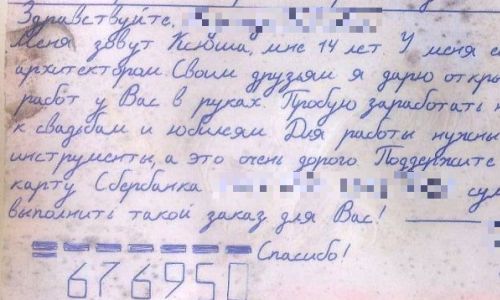 Здравствуйте,
Меня зовут Ксюша, мне 14 лет. У меня
архитектором. Своим друзьям я дарю
работ у Вас в руках. Пробую заработать
к свадьбам и юбилеям. Для работы нужны
инструменты, а это очень дорого. Поддержите
карту Сбербанка
выполнить такой заказ для Вас!
Спасибо!
676950